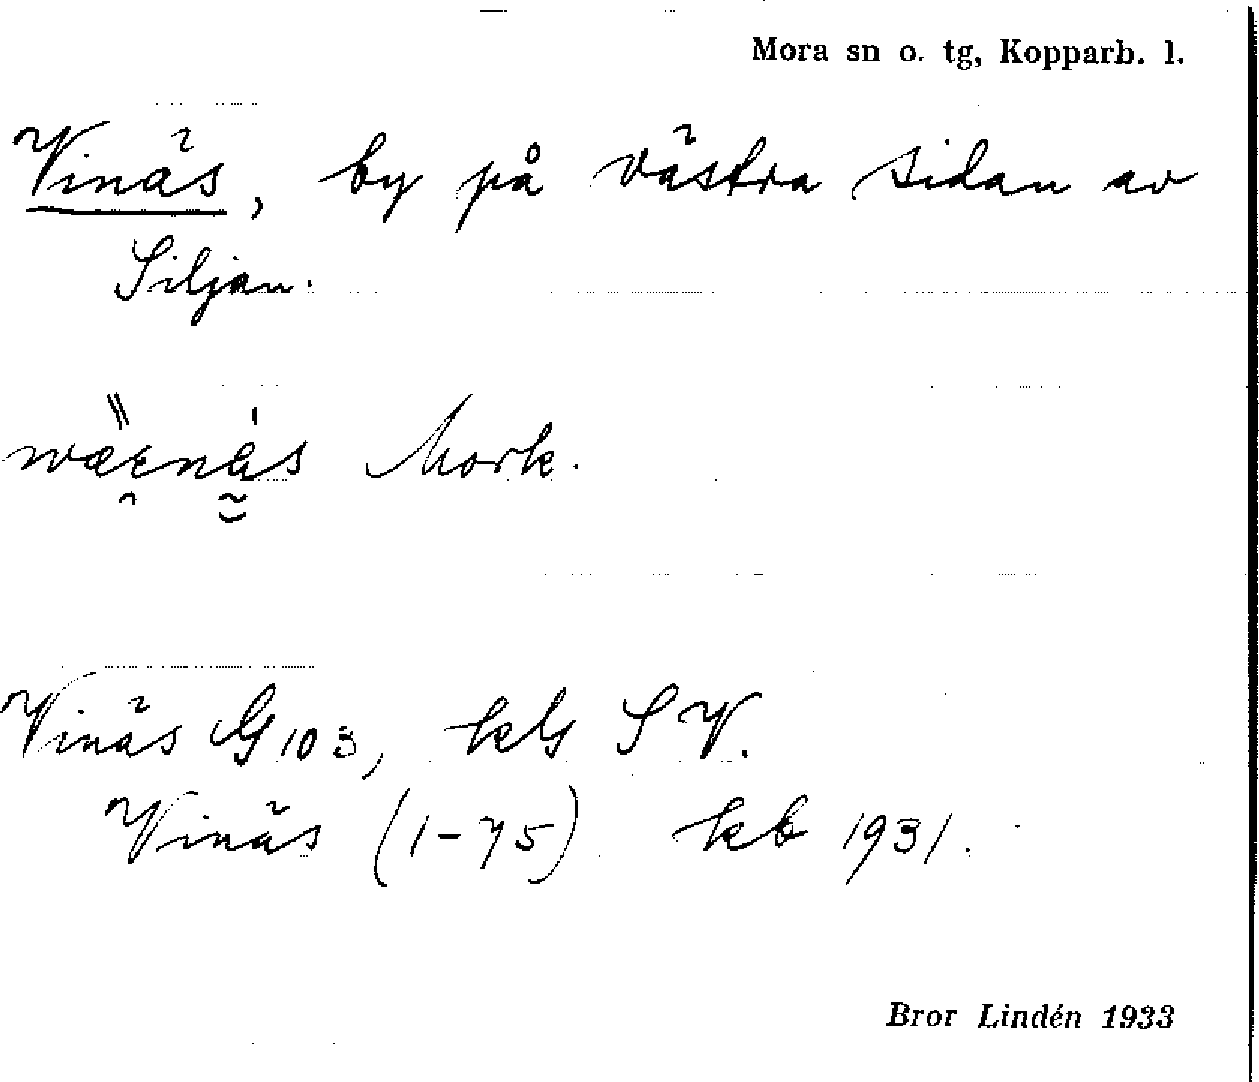 Mora sn o. tg, Kopparb. l.
Vinäs, by på västra sidan av
Siljan.
Mork.
Vinäs G 103, kls S V.
Vinäs (1-75) kb 1931.
Bror Lindén 1933